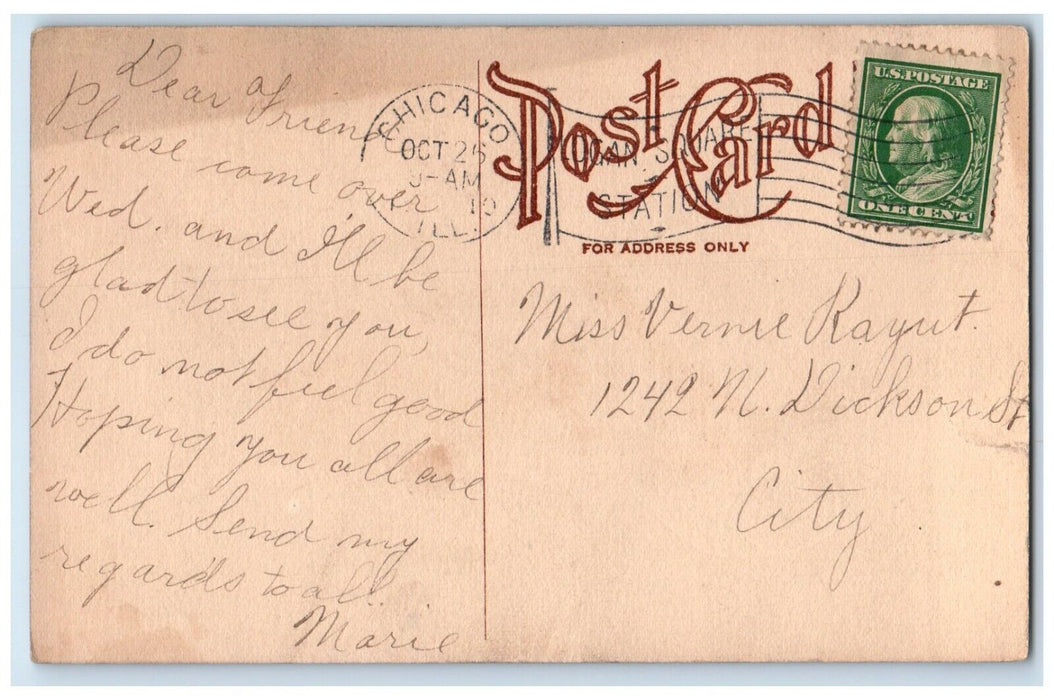 Dear Friend
Please come over
Wed. and I'll be
glad to see you,
I do not feel good
Hoping you all are
well. Send my
regards to all.
Marie
Post Card
FOR ADDRESS ONLY
CHICAGO
OCT 25
-AM
10
ILL.
LOGAN SQUARE
STATION
U.S. POSTAGE
ONE CENT
Miss Vernie Rayut.
1242 N. Dickson St
City